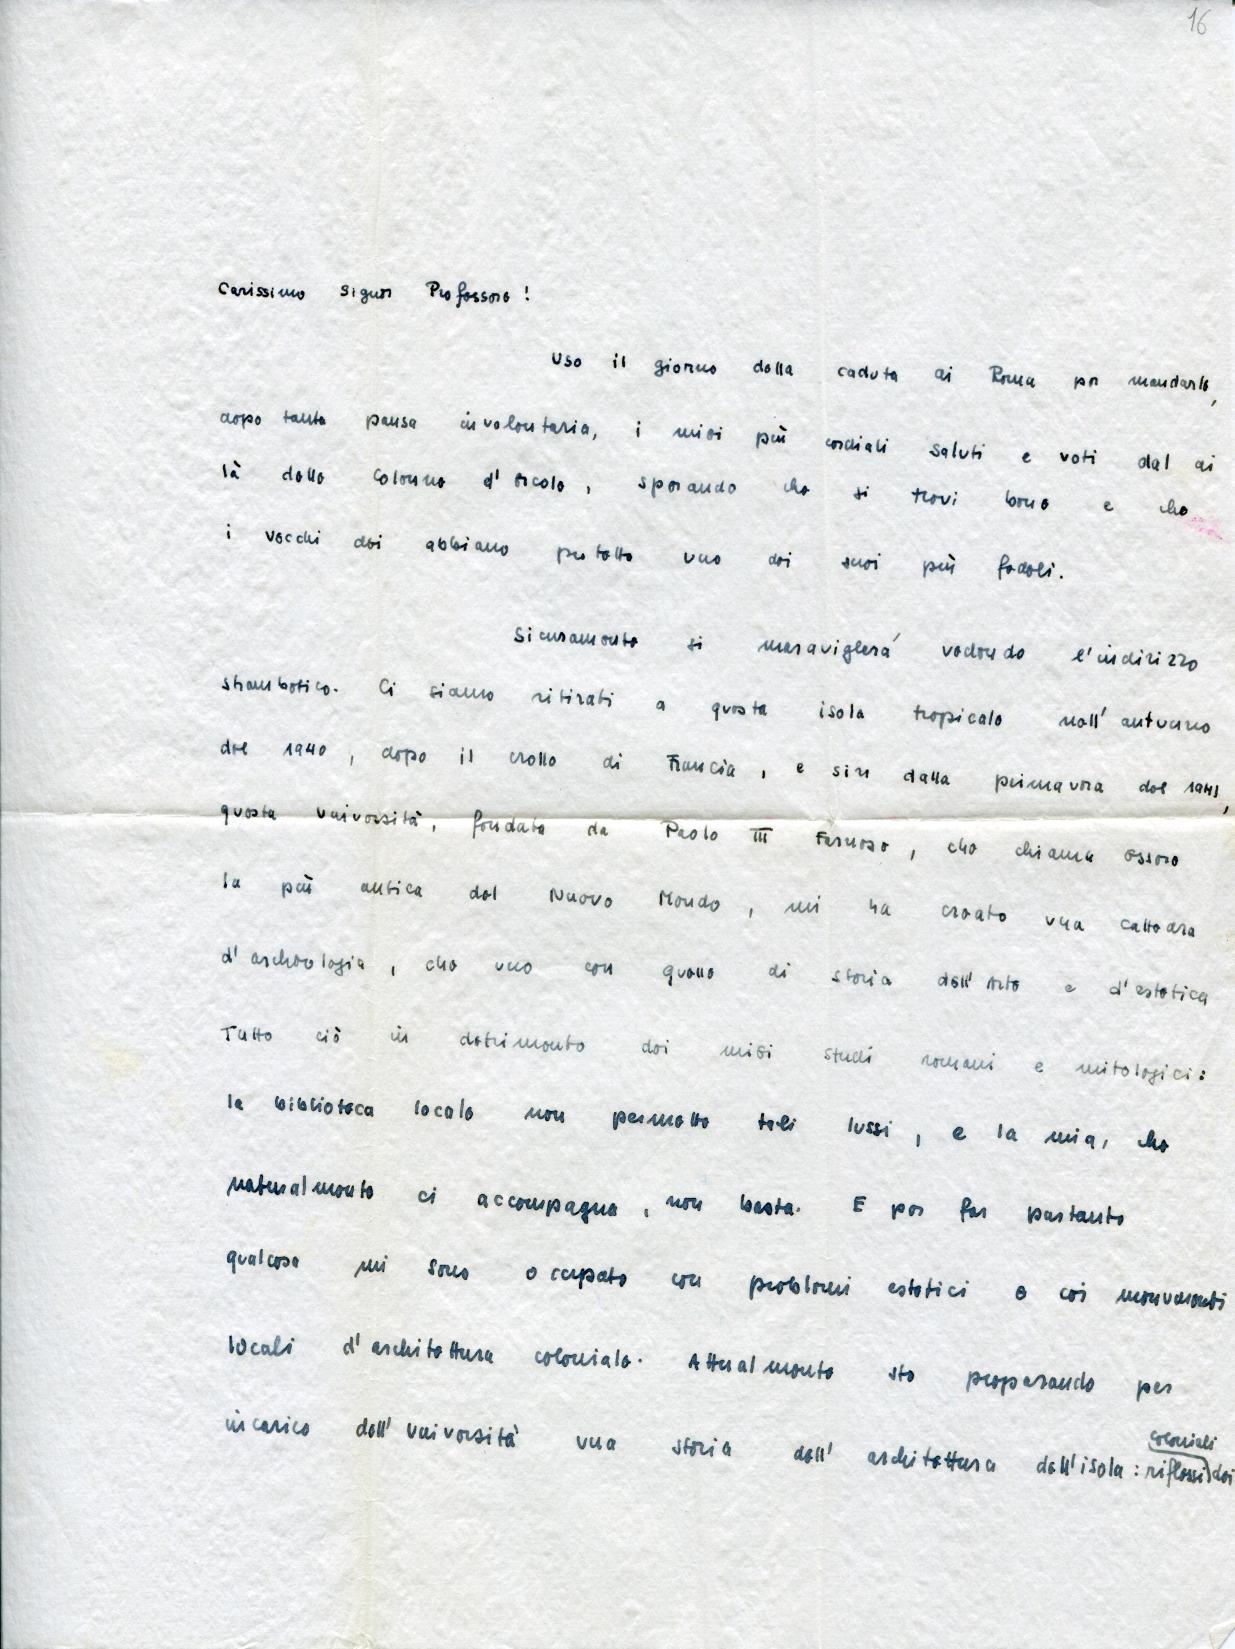 16
Carissimo Signor Professore!
Uso il giorno della caduta di Roma per mandarle,
dopo tanta pausa involontaria, i miei più cordiali saluti e voti dal di
là delle Colonne d'Ercole, sperando che si trovi bene e che
i vecchi dei abbiano protetto uno dei suoi più fedeli.
Sicuramente si maraviglerá vedendo l'indirizzo
strambotico. Ci siamo ritirati a questa isola tropicale nell'autunno
del 1940, dopo il crollo di Francia, e sin dalla primavera del 1941,
questa università, fondata da Paolo III Farnese, che chiama essere
la più antica del Nuovo Mondo, mi ha creato una cattedra
d'archeologia, che uno con quella di storia dell'Arte e d'estetica
Tutto ciò in detrimento dei miei studi romani e mitologici:
la biblioteca locale non permette tali lussi, e la mia, che
naturalmente ci accompagna, non basta. E per far pertanto
qualcosa mi sono occupato con problemi estetici e coi monumenti
locali d'architettura coloniale. Attualmente sto preparando per
incarico dell'università una storia dell'architettura dell'isola: riflessi coloniali dei